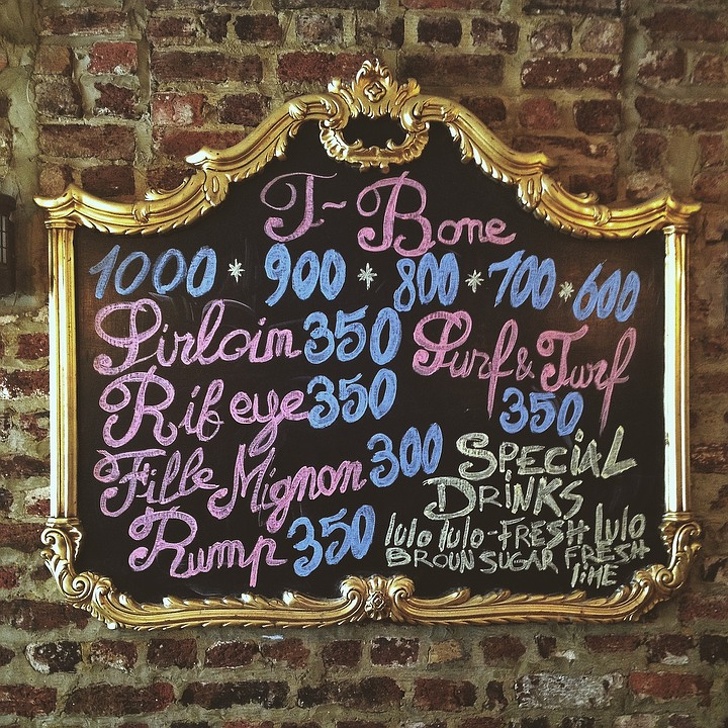 T-Bone
1000 * 900 * 800 * 700 * 600
Sirloin 350
Surf & Turf
350
Rib eye 350
Fille Mignon 300
Rump 350
SPECIAL
DRINKS
lulo lulo-FRESH lulo
BROUN SUGAR FRESH
liME